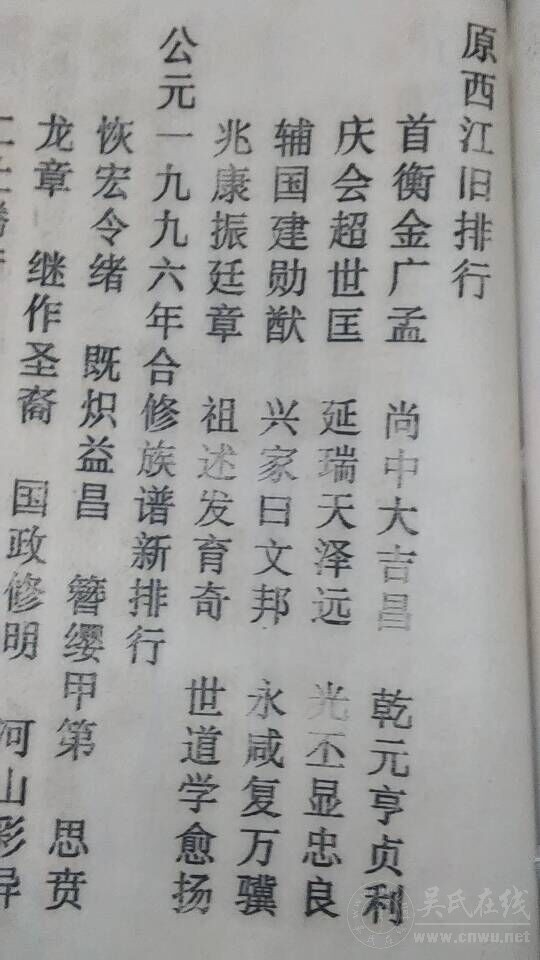 原西江旧排行
首衡金广孟 尚中大吉昌 乾元亨贞利
庆会超世匡 延瑞天泽远 光丕显忠良
辅国建勋猷 兴家曰文邦 永咸复万骥
兆康振廷章 祖述发育奇 世道学愈扬
公元一九九六年合修族谱新排行
恢宏令绪 既炽益昌 簪缨甲第 思贲
龙章 继作圣裔 国政修明 河山彩异
吴氏在线
www.cnwu.net